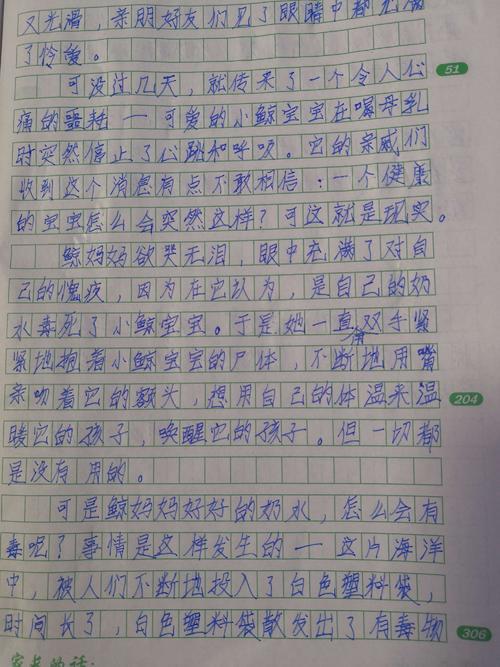 又光滑，亲朋好友们见了眼睛中都充满
了怜爱。
可没过几天，就传来了一个令人心
51
痛的噩耗一可爱的小鲸宝宝在喝母乳
时突然停止了心跳和呼吸。它的亲戚们
收到这个消息有点不敢相信：一个健康
的宝宝怎么会突然这样？可这就是现实。
鲸妈妈欲哭无泪，眼中充满了对自
己的愧疚，因为在它以为，是自己的奶
水毒死了小鲸宝宝。于是她一直双手紧
紧地抱着小鲸宝宝的尸体，不断地用嘴
亲吻着它的额头，想用自己的体温来温
204
暖它的孩子，唤醒它的孩子。但一切都
是没有用的。
可是鲸妈妈好好的奶水，怎么会有
毒呢？事情是这样发生的一这片海洋
中，被人们不断地投入了白色塑料袋，
时间长了，白色塑料袋散发出了有毒物
306
家长的话：